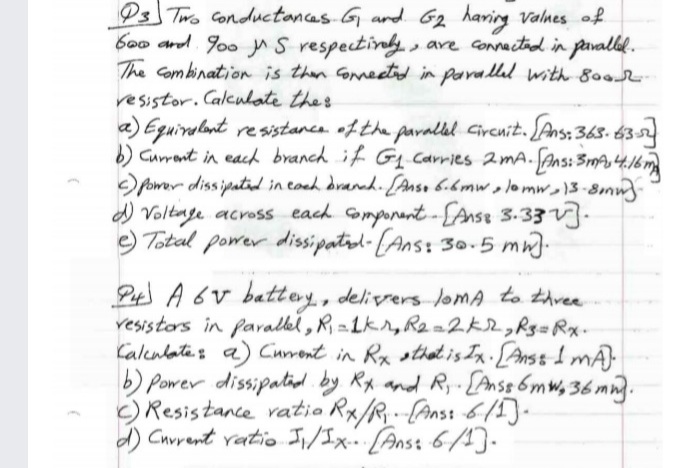 Q3] Two conductances G1 and G2 having values of
600 and 900 μS respectively, are connected in parallel.
The combination is then connected in parallel with 800Ω
resistor. Calculate the:
a) Equivalent resistance of the parallel circuit. [Ans: 363.63Ω]
b) Current in each branch if G1 carries 2mA. [Ans: 3mA, 4.16mA]
c) power dissipated in each branch. [Ans: 6.6mw, 10mw, 13.8mw]
d) Voltage across each component. [Ans: 3.33V].
e) Total power dissipated. [Ans: 30.5 mw].
Q4] A 6V battery, delivers 10mA to three
resistors in parallel, R1=1kΩ, R2=2kΩ, R3=Rx.
Calculate: a) Current in Rx, that is Ix. [Ans: 1 mA].
b) Power dissipated by Rx and R1. [Ans: 6mw, 36mw].
c) Resistance ratio Rx/R1. [Ans: 6/1].
d) Current ratio I1/Ix.. [Ans: 6/1].